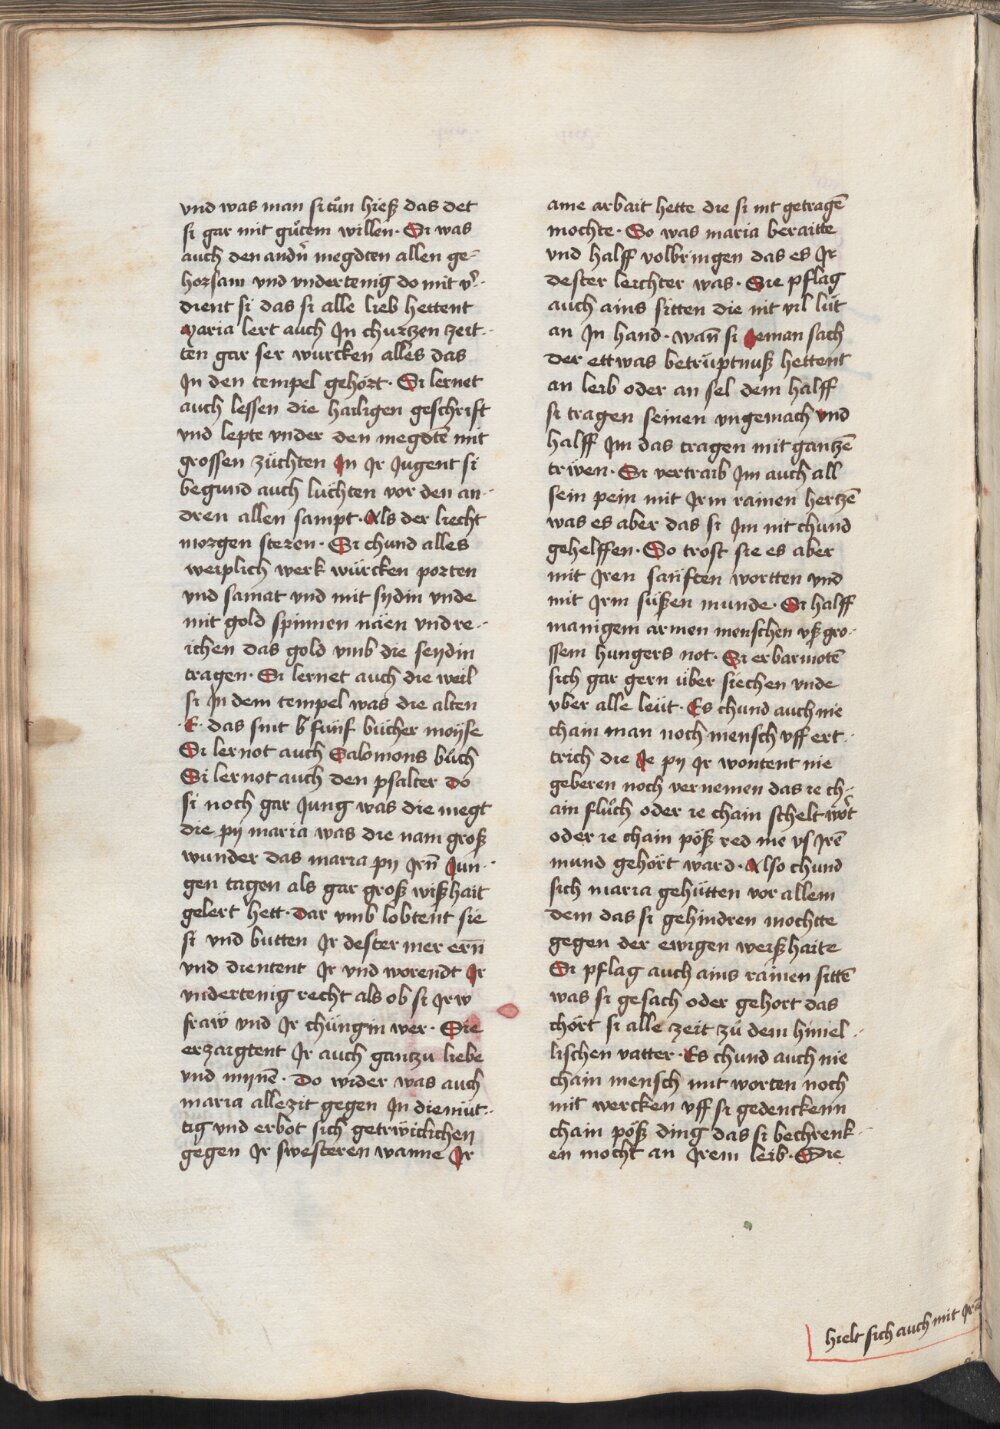 vnd was man si tůn hieß das det
si gar mit gůtem willen · Si was
auch den andn̄ megdten allen ge-
horsam vnd vndertenig do mit v̄-
dient si das si alle lieb hettent
Maria lert auch In churtzen zeit-
ten gar ser wurcken alles das
In den tempel gehört · Si lernet
auch lessen die hailigen geschrift
vnd lepte vnder den megdtē mit
grossen züchten In Ir Jugent si
begund auch lüchten vor den an-
dren allen sampt · Als der liecht
morgen steren · Si chund alles
weiplich werk würcken porten
vnd samat vnd mit sydin vnde
mit gold spinnen näen vnd re-
ichen das gold vmb die seydin
tragen · Si lernet auch die weil
si In dem tempel was die alten
· E · das sint b̄ fünf bücher moyse
Si lernot auch Salomons bůch
Si lernot auch den psalter Do
si noch gar Jung was die megt
die py maria was die nam groß
wunder das maria py Irn̄ Jun-
gen tagen als gar groß wißhait
gelert hett · Dar vmb lobtent sie
si vnd butten Ir dester mer ern̄
vnd dientent Ir vnd worendt Ir
vndertenig recht als ob si Irw
fraw vnd Ir chüngin wer · Die
erzaigtent Ir auch gantzu liebe
vnd mynē · Do wider was auch
maria allezit gegen In diemüt-
tig vnd erbot sich getrwlichen
gegen Ir swesteren wanne Ir
ame arbait hette die si nit getragē
mochte · So was maria beraitte
vnd halff volbringen das es Ir
dester leichter was · Sie pflag
auch ains sitten die nit vil lüt
an In hand · wan̄ si Jeman sach
der ettwas betrüptnuß hettent
an leib oder an sel dem halff
si tragen seinen vngemach vnd
halff Im das tragen mit gantzē
trwen · Si vertraib Im auch all
sein pein mit Irm rainen hertzē
was es aber das si Im nit chund
gehelffen · So trost sie es aber
mit Iren sanften wortten vnd
mit Irm süßen munde · Si halff
manigem armen menschen vß gro-
ssem hungers not · Si erbarmotē
sich gar gern über siechen vnde
vber alle leüt · Es chund auch nie
chain man noch mensch vff ert-
trich die Je py Ir wontent nie
geberen noch vernemen das ie ch-
ain flůch oder ie chain schelt wo̊t
oder ie chain pöß red nie vs Irē
mund gehört ward · Also chund
sich maria gehütten vor allem
dem das si gehindren mochtte
gegen der ewigen weißhaite
Si pflag auch ains rainen sittē
was si gesach oder gehort das
chört si alle zeit zů dem himel-
lischen vatter · Es chund auch nie
chain mensch mit worten noch
mit wercken vff si gedenckenn
chain pöß ding das si bechrenk-
en mocht an Irem leib · Die
hielt sich auch mit